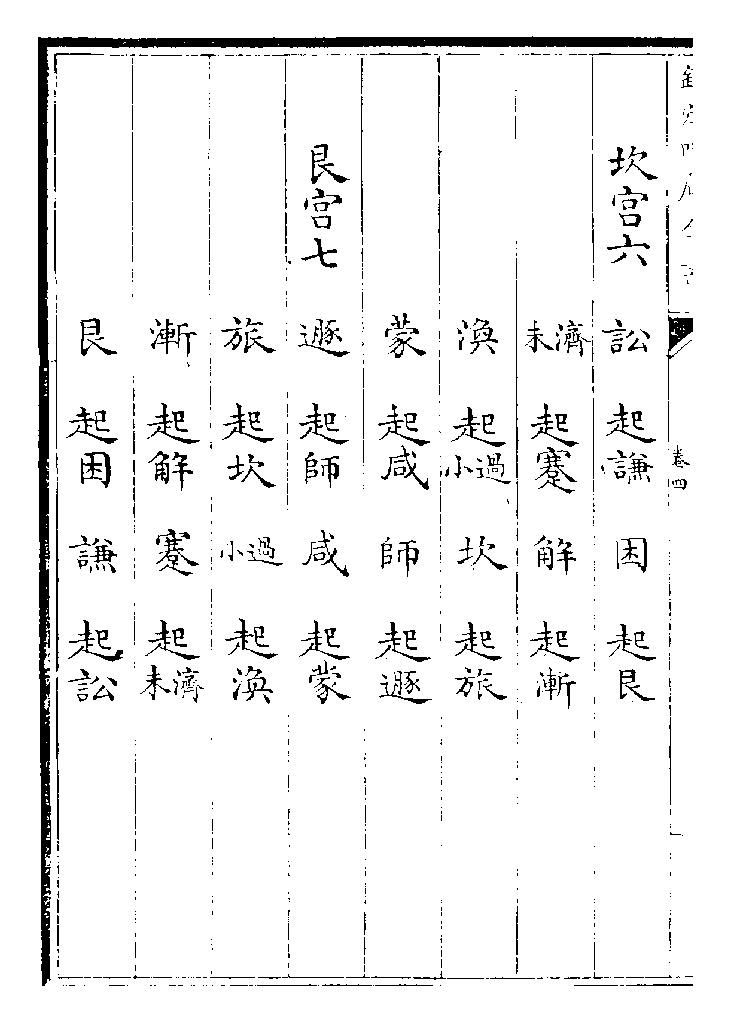 坎宫六 訟 起謙 困 起艮
未濟 起蹇 解 起漸
渙 起小過 坎 起旅
蒙 起咸 師 起遯
艮宫七 遯 起師 咸 起蒙
旅 起坎 小過 起渙
漸 起解 蹇 起未濟
艮 起困 謙 起訟
卷四